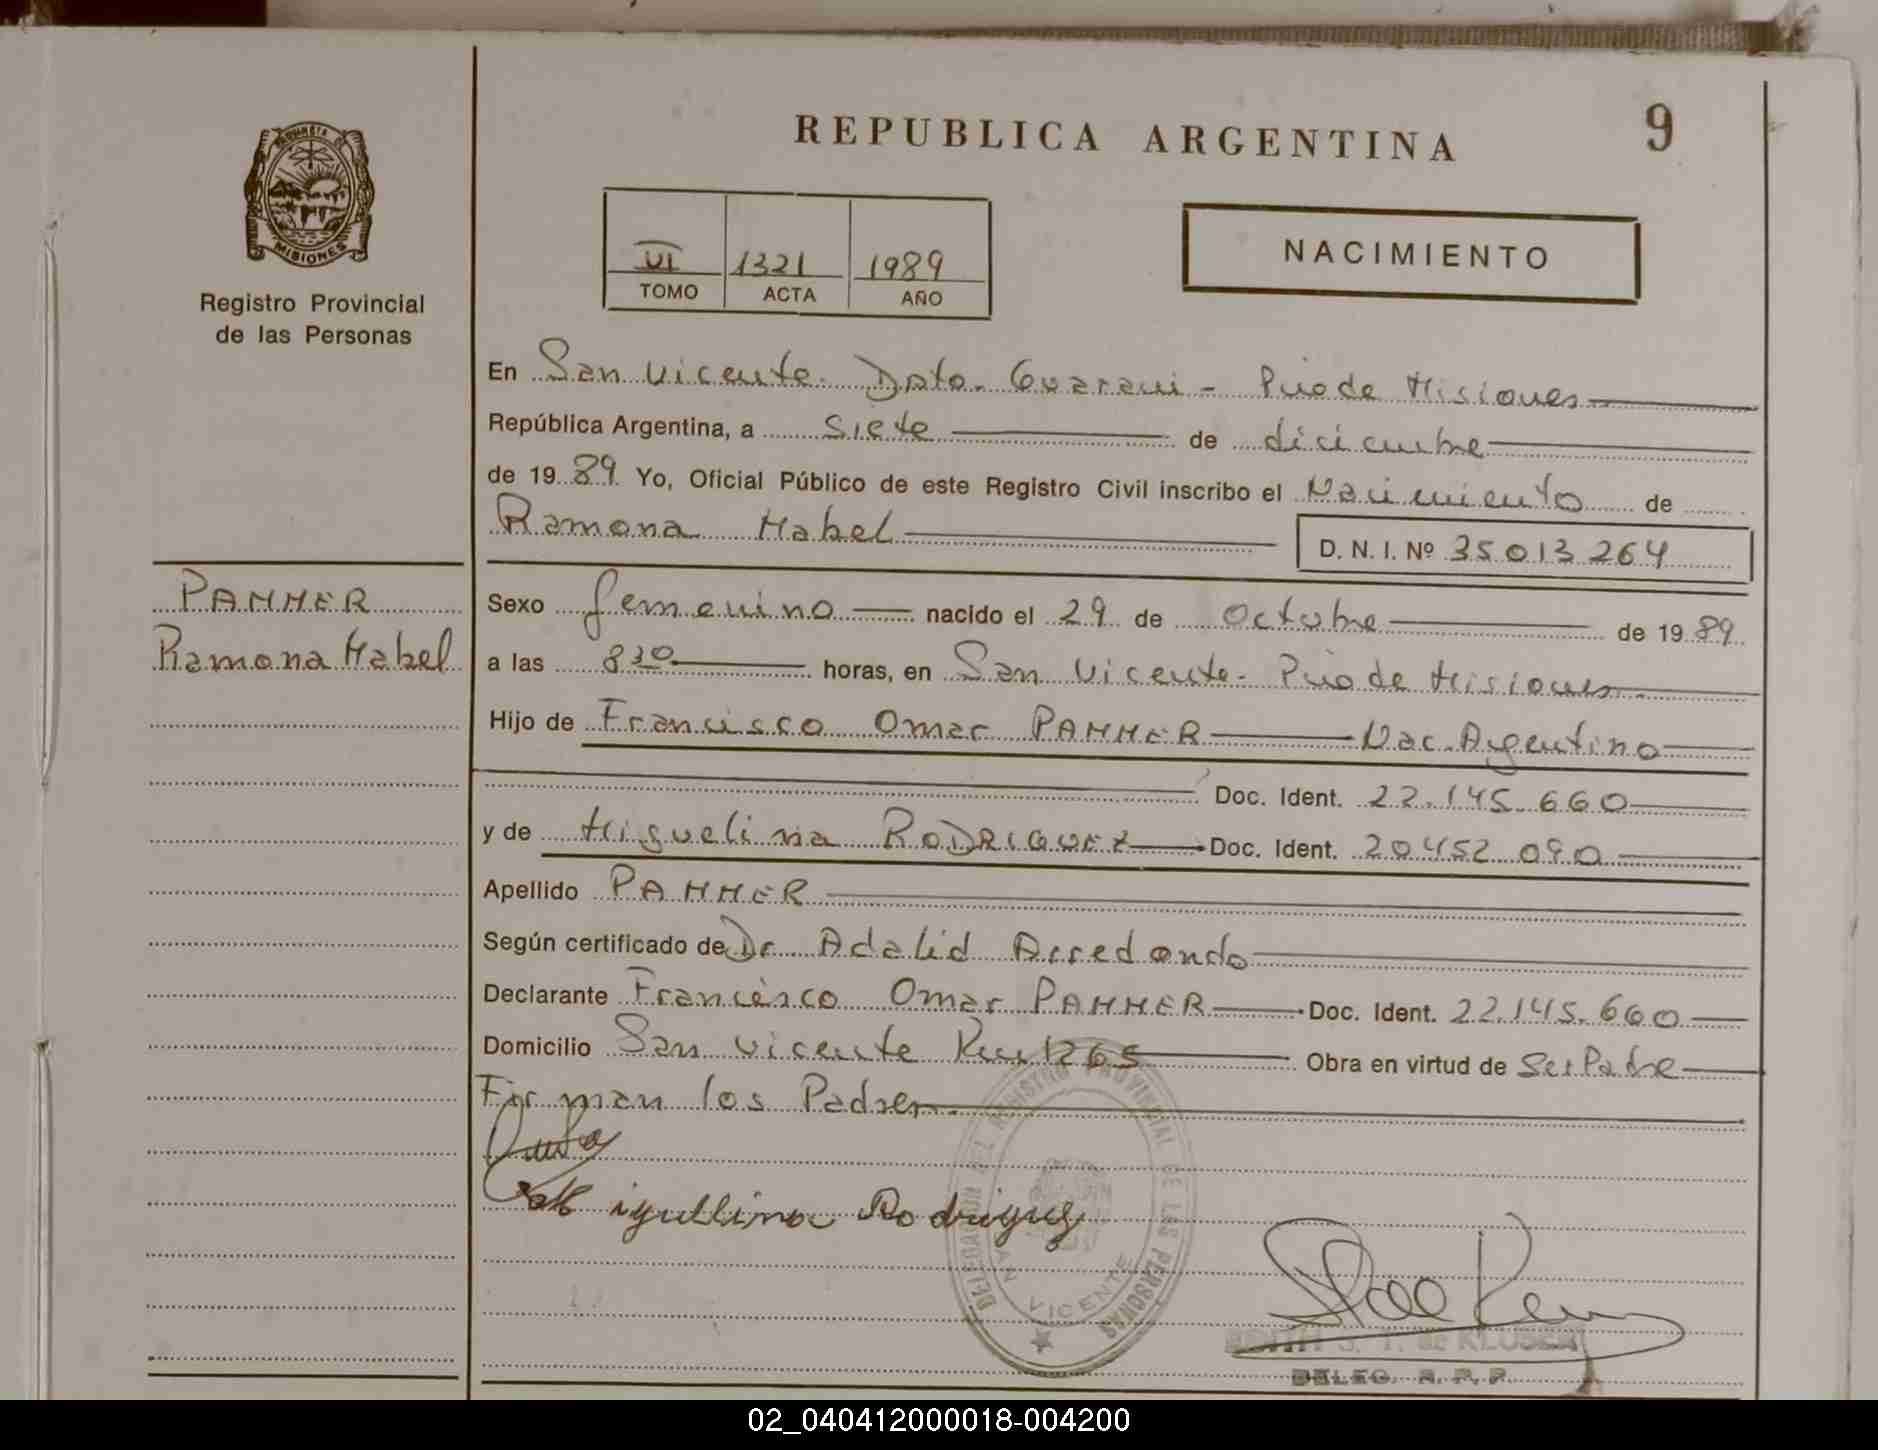 REPUBLICA ARGENTINA
9
MISIONES
Registro Provincial
de las Personas
VI 1321 1989
TOMO ACTA AÑO
NACIMIENTO
En San Vicente. Dpto. Guarani - Pcia de Misiones
República Argentina, a siete de diciembre
de 1989 Yo, Oficial Público de este Registro Civil inscribo el Nacimiento de
Ramona Mabel
D. N. I. Nº 35.013.264
PAMMER
Ramona Mabel
Sexo femenino nacido el 29 de Octubre de 1989
a las 8 30 horas, en San Vicente - Pcia de Misiones
Hijo de Francisco Omar PAMMER Nac. Argentino
Doc. Ident. 22.145.660
y de Miguelina RODRIGUEZ Doc. Ident. 20.452.090
Apellido PAMMER
Según certificado de Dr. Adalid Arredondo
Declarante Francisco Omar PAMMER Doc. Ident. 22.145.660
Domicilio San Vicente Km 1265 Obra en virtud de Ser Padre
Firman los Padres
Miguellina Rodriguez
DELEGACION DEL REGISTRO PROVINCIAL DE LAS PERSONAS
SAN VICENTE
EDITH S. T. de KLUSEN
DELEG. R. P. P.
02_040412000018-004200